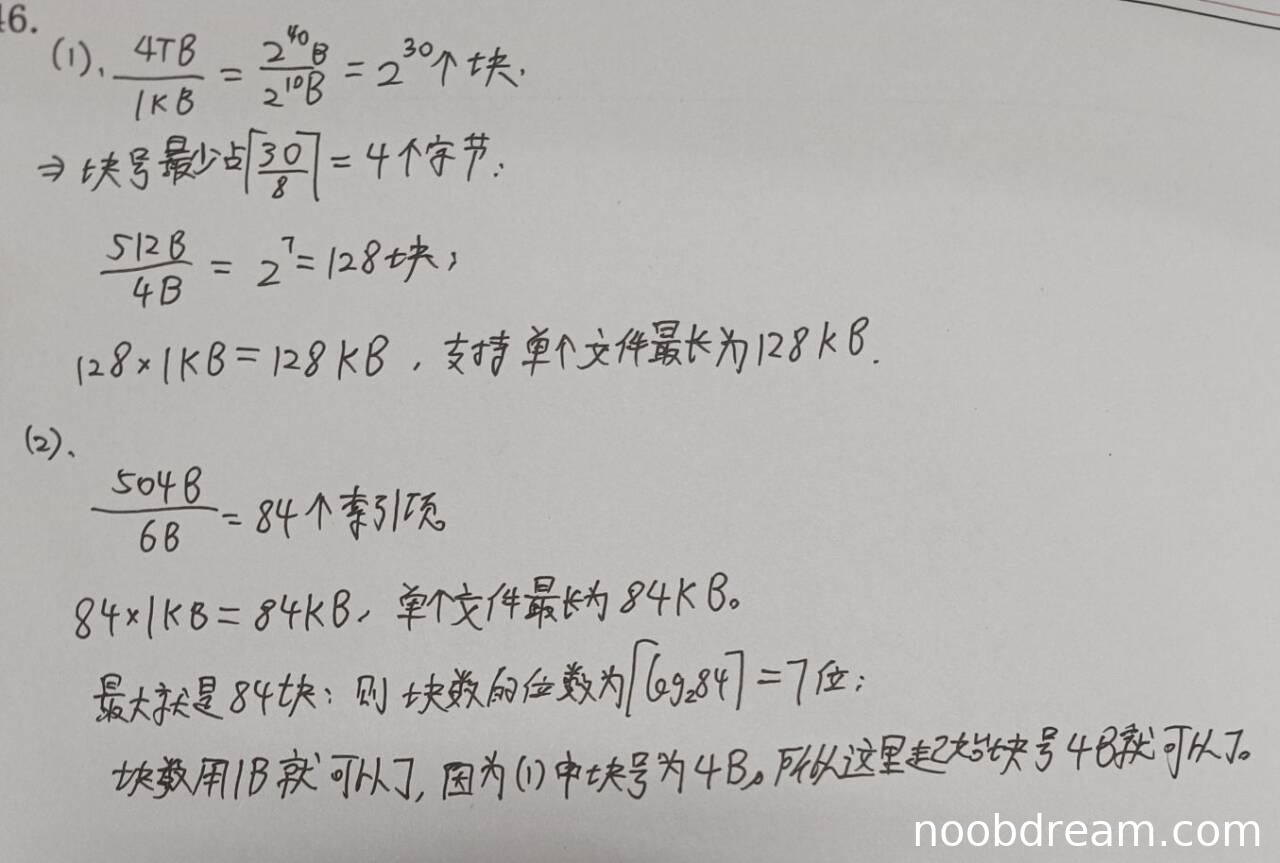 46.
(1). 4TB/1KB = 2^40B/2^10B = 2^30个块.
⇒ 块号最少占⌈30/8⌉ = 4个字节;
512B/4B = 2^7 = 128块;
128×1KB = 128KB, 支持单个文件最长为128KB.
(2).
504B/6B = 84个索引项
84×1KB = 84KB, 单个文件最长为84KB。
最大就是84块; 则块数的位数为⌈log₂84⌉ = 7位;
块数用1B就可以了, 因为(1)中块号为4B。所以这里起始块号4B就可以了。
noobdream.com